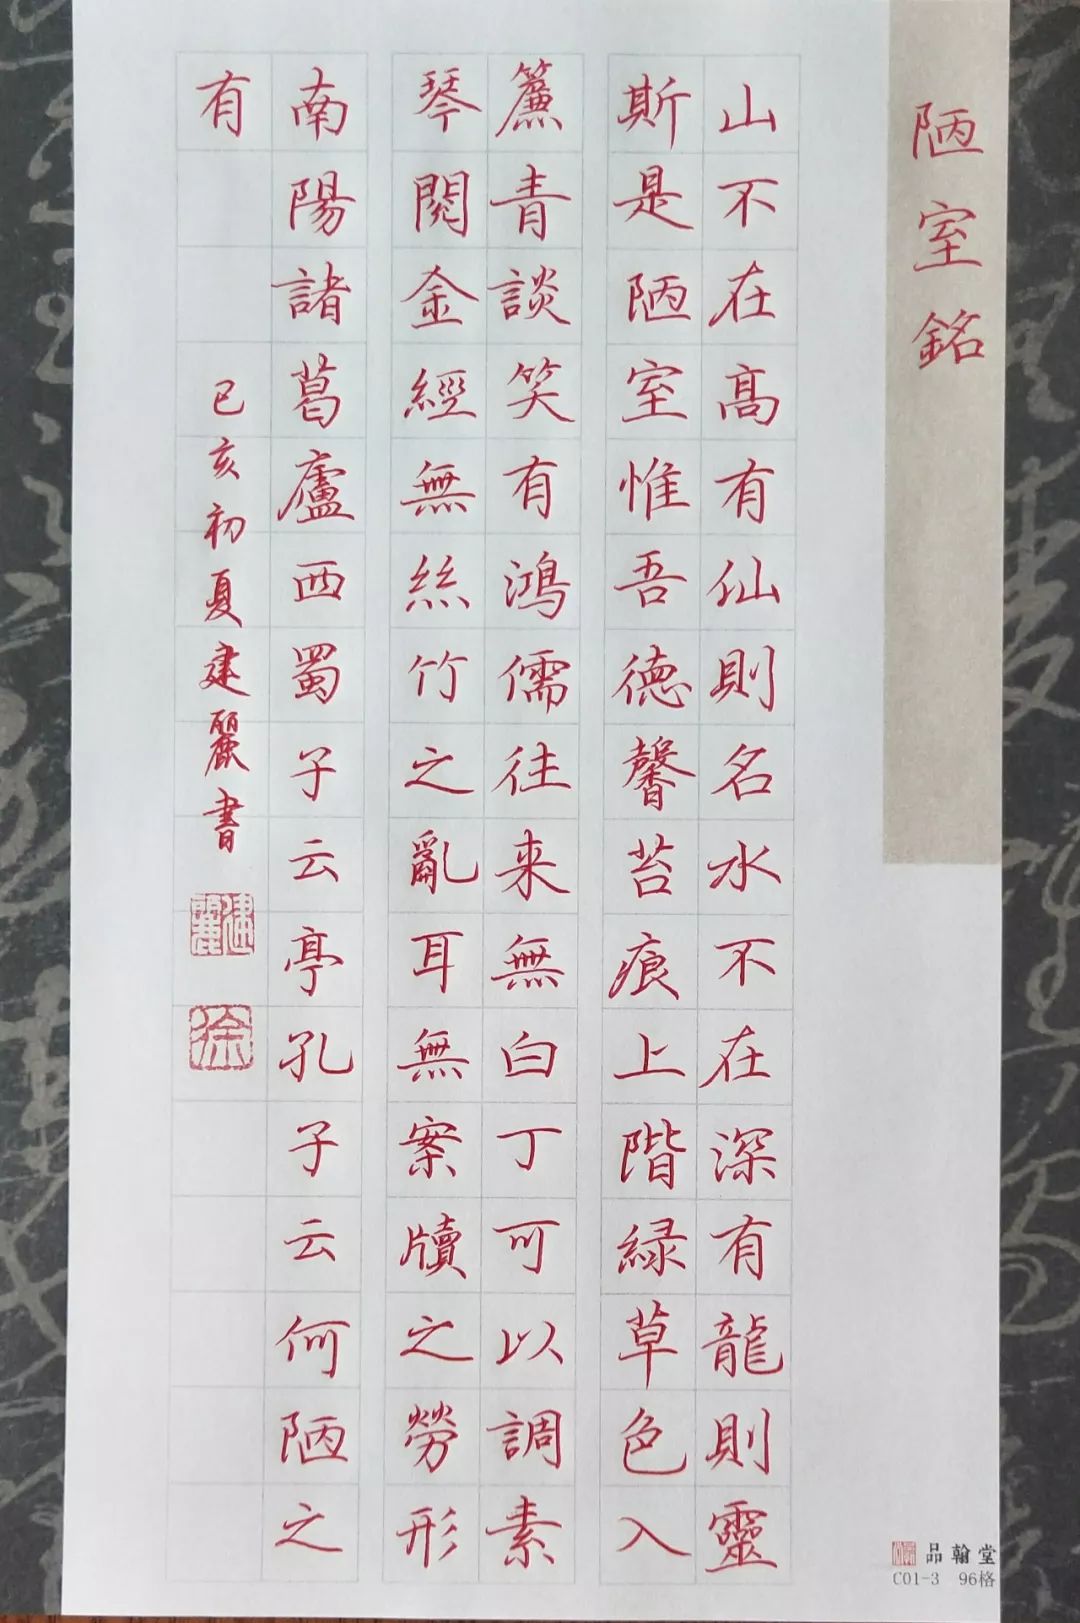 陋室銘
山不在高有仙則名水不在深有龍則靈
斯是陋室惟吾德馨苔痕上階緑草色入
簾青談笑有鴻儒往来無白丁可以調素
琴閱金經無絲竹之亂耳無案牘之勞形
南陽諸葛廬西蜀子云亭孔子云何陋之
有
己亥初夏建麗書
建麗
徐
品翰堂
C01-3 96格